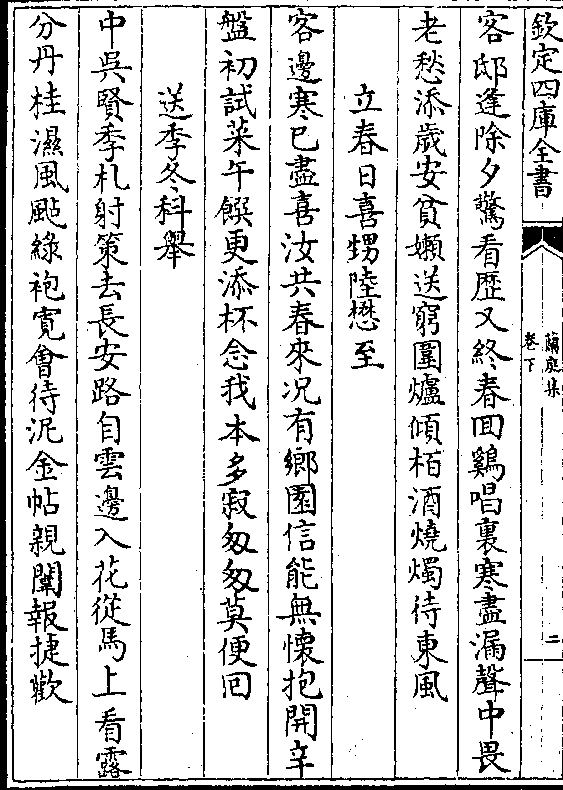 欽定四庫全書
蘭庭集
卷下
二
客邸逢除夕驚看歴又終春囬鷄唱裏寒盡漏聲中畏
老愁添歲安貧嬾送窮圍爐傾栢酒燒燭待東風
立春日喜甥陸懋至
客邊寒已盡喜汝共春來况有鄉園信能無懷抱開辛
盤初試菜午饌更添杯念我本多寂匆匆莫便囬
送季冬科舉
中吳賢季札射策去長安路自雲邊入花從馬上看露
分丹桂濕風颭綠袍寛㑹待泥金帖親闈報捷歡